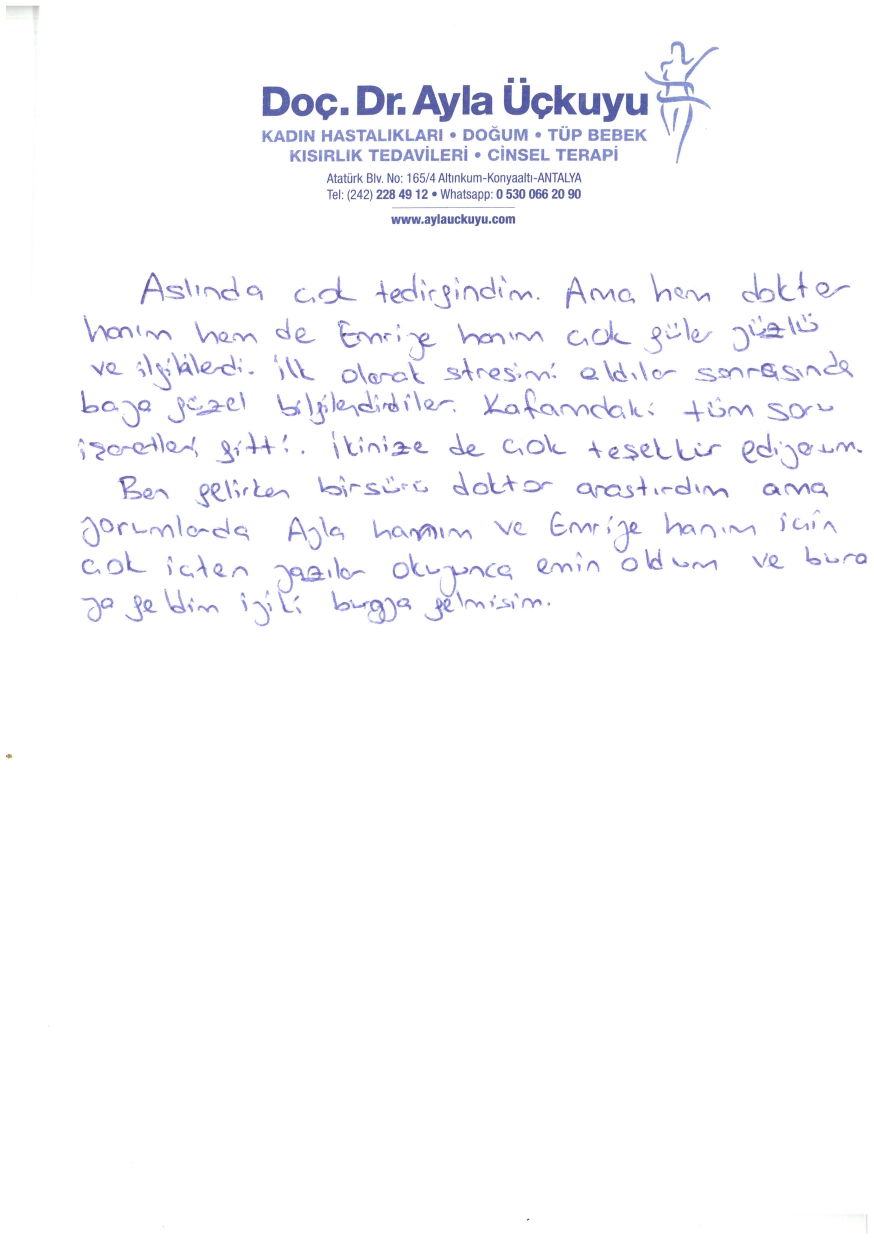 Doç. Dr. Ayla Üçkuyu
KADIN HASTALIKLARI • DOĞUM • TÜP BEBEK
KISIRLIK TEDAVİLERİ • CİNSEL TERAPİ
Atatürk Blv. No: 165/4 Altınkum-Konyaaltı-ANTALYA
Tel: (242) 228 49 12 • Whatsapp: 0 530 066 20 90
www.aylauckuyu.com
Aslında çok tedirgindim. Ama hem doktor
hanım hem de Emriye hanım çok güler yüzlü
ve ilgililerdi. İlk olarak stresimi aldılar sonrasında
baya güzel bilgilendirdiler. Kafamdaki tüm soru
işaretleri gitti. İkinize de çok teşekkür ediyorum.
Ben gelirken birsürü doktor araştırdım ama
yorumlarda Ayla hanım ve Emriye hanım için
çok içten yazılar okuyunca emin oldum ve bura
ya geldim iyiki buraya gelmişim.